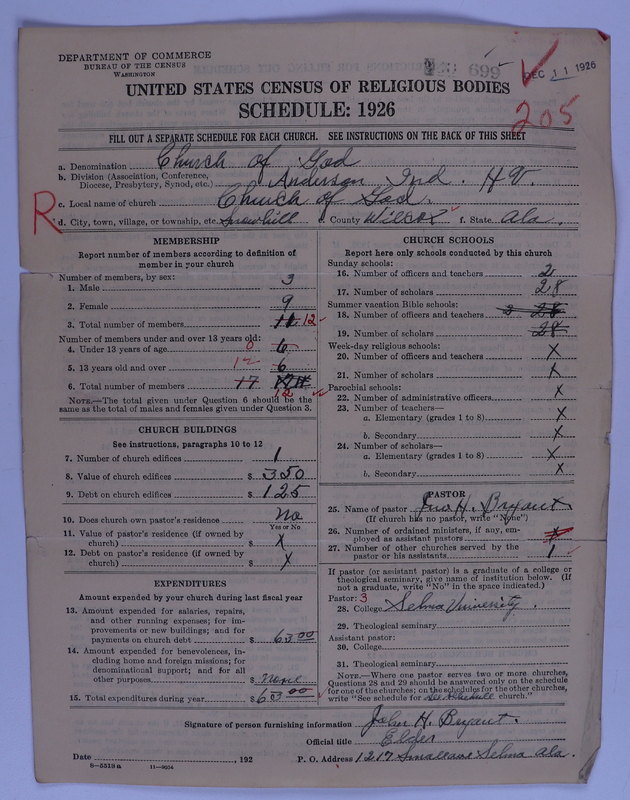 DEPARTMENT OF COMMERCE
BUREAU OF THE CENSUS
WASHINGTON
699
DEC 11 1926
205
UNITED STATES CENSUS OF RELIGIOUS BODIES
SCHEDULE: 1926
FILL OUT A SEPARATE SCHEDULE FOR EACH CHURCH. SEE INSTRUCTIONS ON THE BACK OF THIS SHEET
a. Denomination Church of God
b. Division (Association, Conference, Diocese, Presbytery, Synod, etc.) Anderson Ind.
c. Local name of church Church of God.
R
d. City, town, village, or township, etc. Snowhill e. County Wilcox f. State Ala.
MEMBERSHIP
Report number of members according to definition of
member in your church
Number of members, by sex:
1. Male 3
2. Female 9
3. Total number of members 11 12
Number of members under and over 13 years old:
4. Under 13 years of age 0 6
5. 13 years old and over 12 6
6. Total number of members 17 12
NOTE.—The total given under Question 6 should be the
same as the total of males and females given under Question 3.
CHURCH BUILDINGS
See instructions, paragraphs 10 to 12
7. Number of church edifices 1
8. Value of church edifices $ 350
9. Debt on church edifices $ 125
10. Does church own pastor's residence No
Yes or No
11. Value of pastor's residence (if owned by
church) $ X
12. Debt on pastor's residence (if owned by
church) $ X
EXPENDITURES
Amount expended by your church during last fiscal year
13. Amount expended for salaries, repairs,
and other running expenses; for im-
provements or new buildings; and for
payments on church debt $ 63 00
14. Amount expended for benevolences, in-
cluding home and foreign missions; for
denominational support; and for all
other purposes $ None
15. Total expenditures during year $ 63 00
CHURCH SCHOOLS
Report here only schools conducted by this church
Sunday schools:
16. Number of officers and teachers 2
17. Number of scholars 28
Summer vacation Bible schools:
18. Number of officers and teachers 28
19. Number of scholars 28
Week-day religious schools:
20. Number of officers and teachers X
21. Number of scholars X
Parochial schools:
22. Number of administrative officers X
23. Number of teachers—
a. Elementary (grades 1 to 8) X
b. Secondary X
24. Number of scholars—
a. Elementary (grades 1 to 8) X
b. Secondary X
PASTOR
25. Name of pastor Jno H. Bryant
(If church has no pastor, write "None")
26. Number of ordained ministers, if any, em-
ployed as assistant pastors
27. Number of other churches served by the
pastor or his assistants 1
If pastor (or assistant pastor) is a graduate of a college or
theological seminary, give name of institution below. (If
not a graduate, write "No" in the space indicated.)
Pastor: 3
28. College Selma University.
29. Theological seminary
Assistant pastor:
30. College
31. Theological seminary
NOTE.—Where one pastor serves two or more churches,
Questions 28 and 29 should be answered only on the schedule
for one of the churches; on the schedules for the other churches,
write "See schedule for church."
Signature of person furnishing information John H. Bryant.
Official title Elder
Date , 192 P. O. Address 1217 Selma Ala.
8—5518a 11—9054